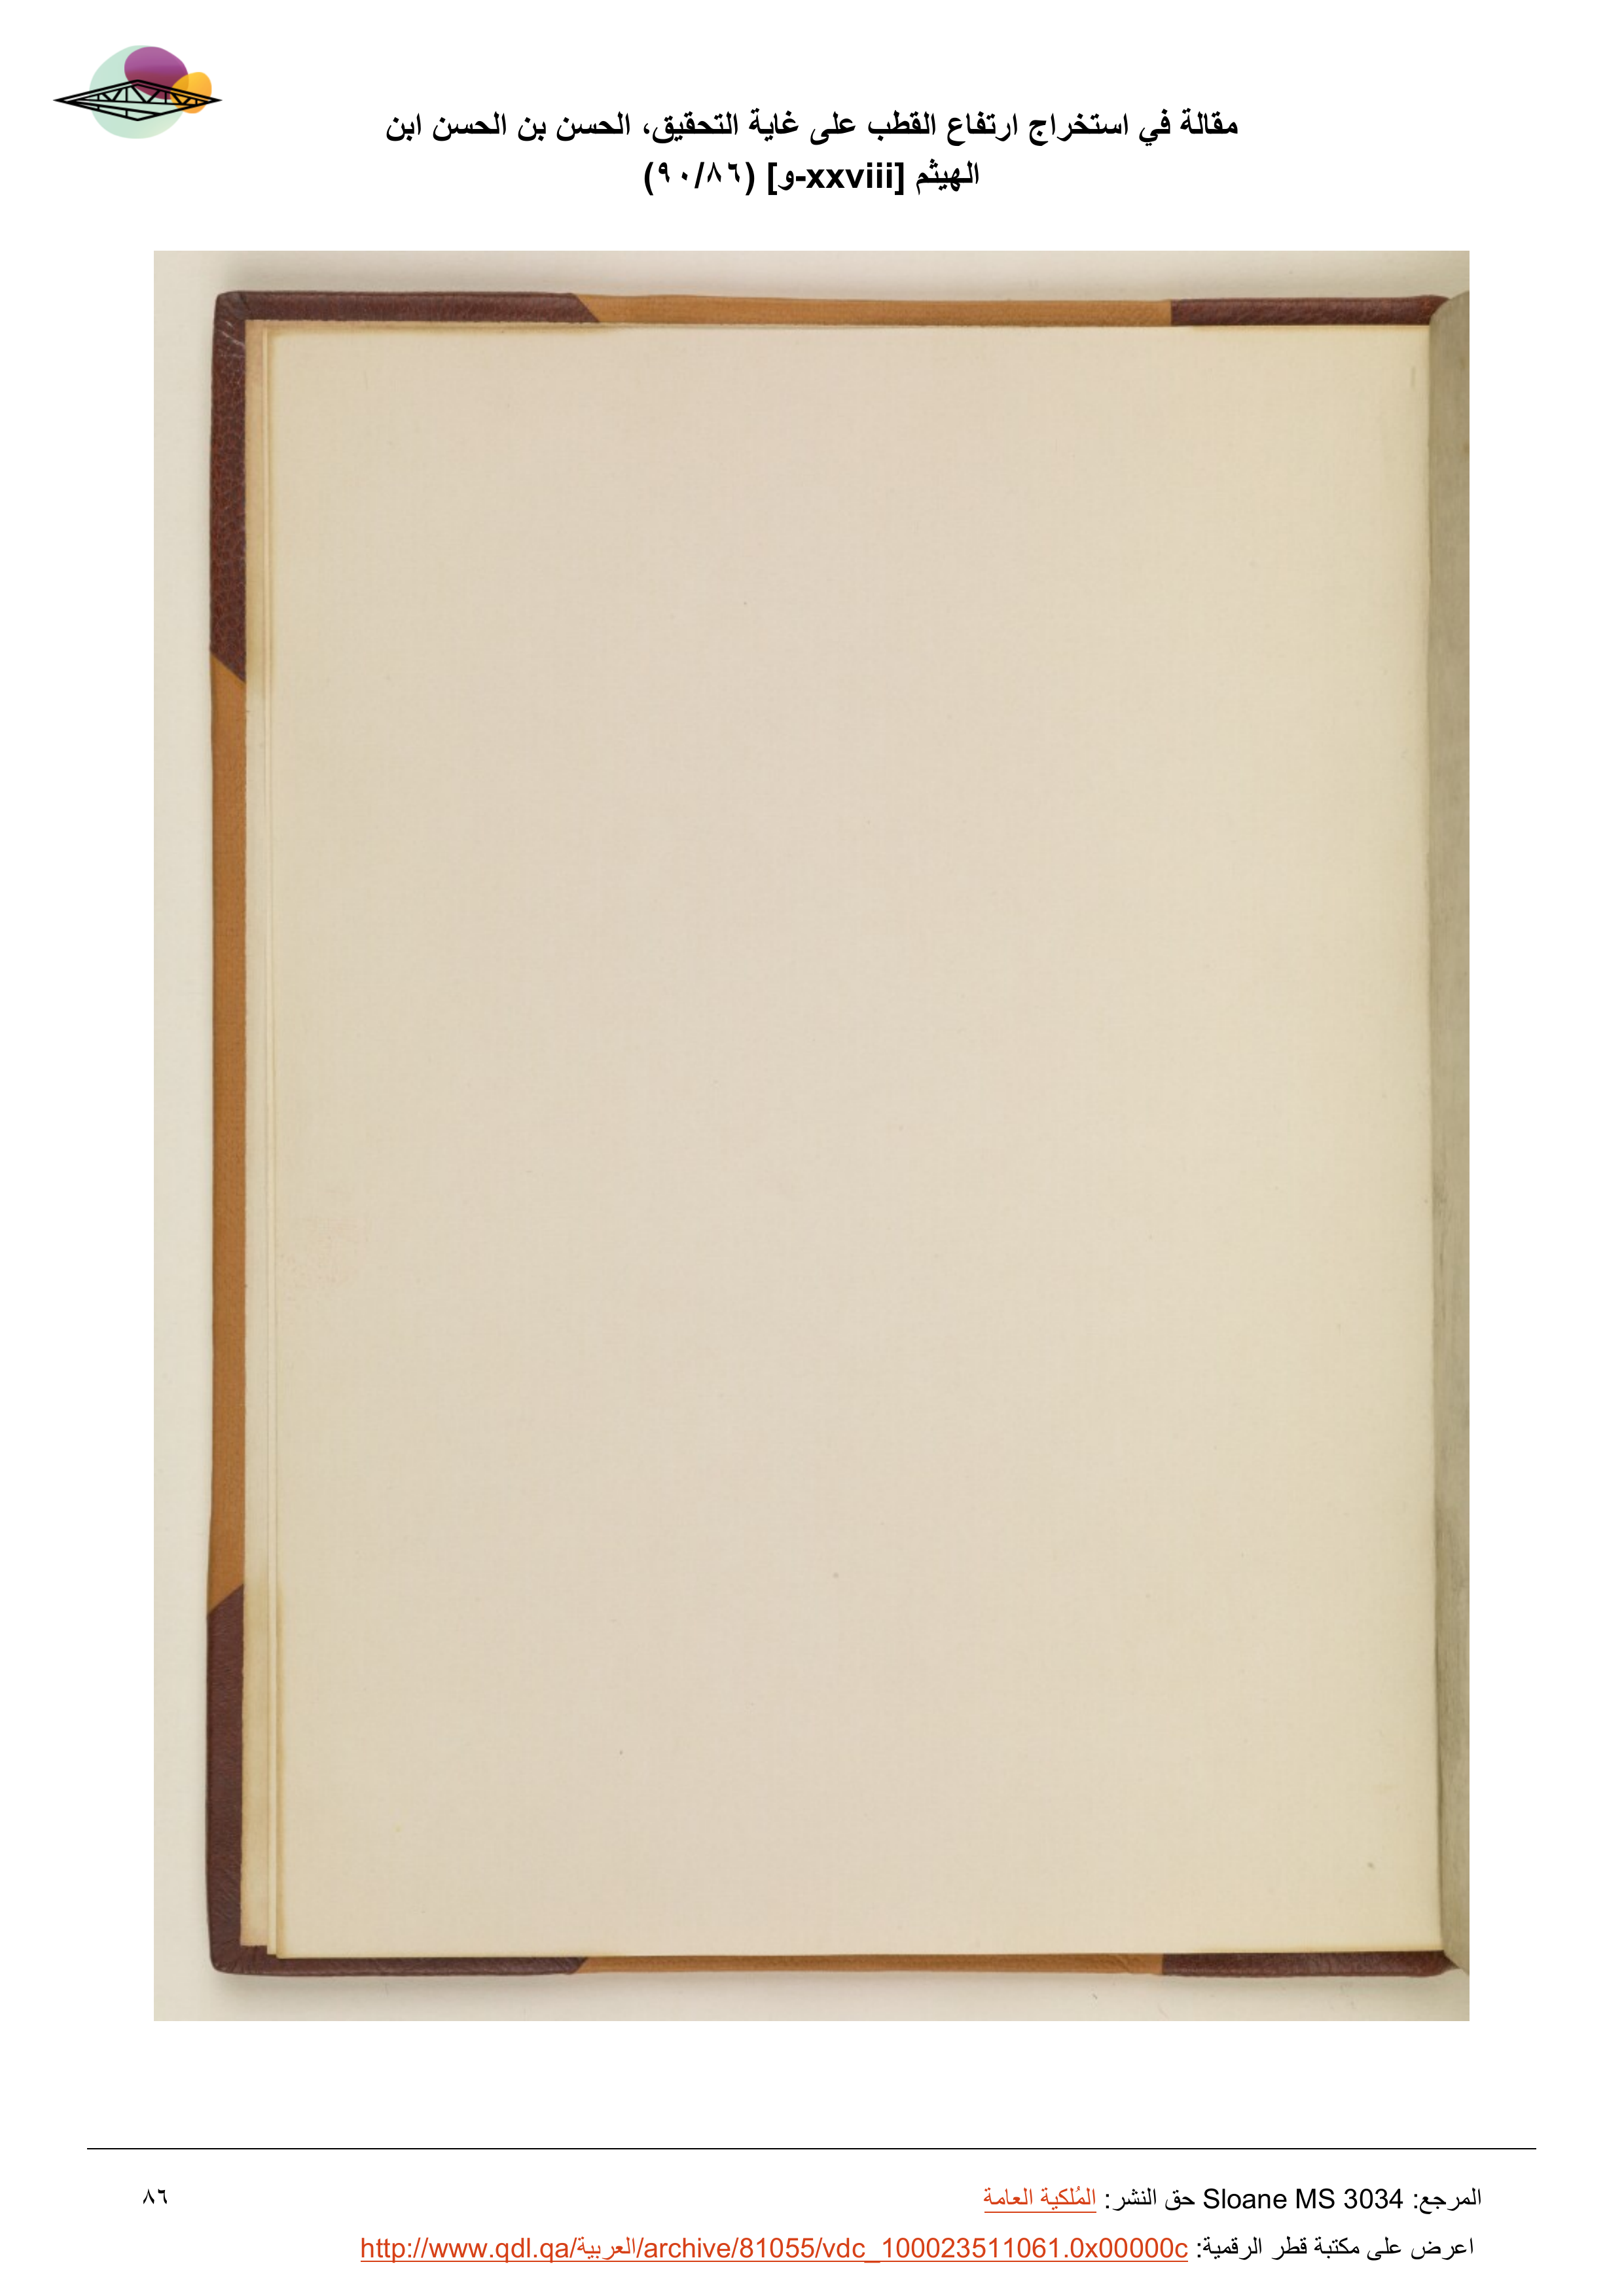 مقالة في استخراج ارتفاع القطب على غاية التحقيق، الحسن بن الحسن ابن
الهيثم [xxviii-و] (٨٦/٩٠)
المرجع: Sloane MS 3034 حق النشر: المُلكية العامة
٨٦
اعرض على مكتبة قطر الرقمية: http://www.qdl.qa/العربية/archive/81055/vdc_100023511061.0x00000c